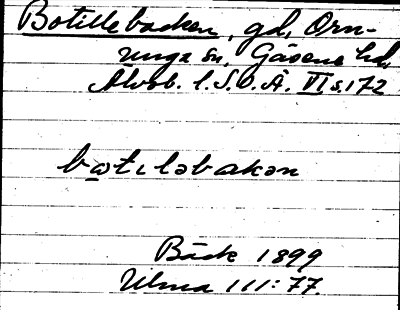 Botillebacken, gd, Orn-
unga sn, Gäsene hd,
Älvsb. l. S.O.Ä. VI s. 172
bɷtıləbakən
Bäck 1899
Ulma 111:77.